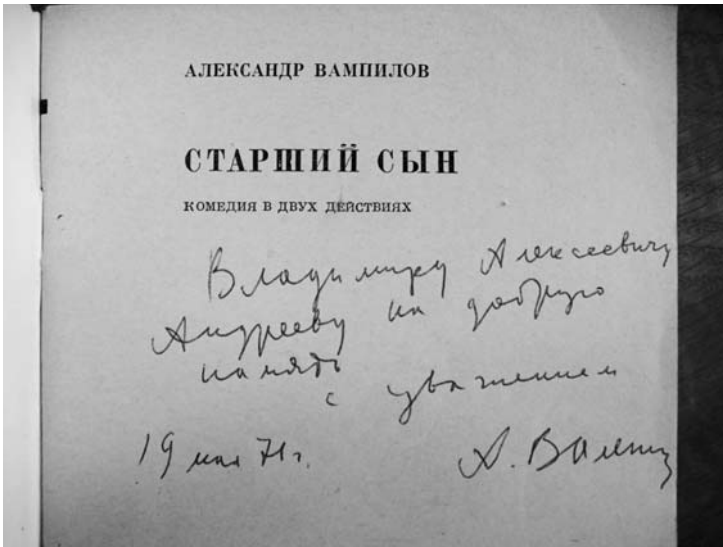 АЛЕКСАНДР ВАМПИЛОВ
СТАРШИЙ СЫН
КОМЕДИЯ В ДВУХ ДЕЙСТВИЯХ
Владимиру Алексеевичу
Андрееву на добрую
память
с уважением
19 мая 71г.
А. Вампил